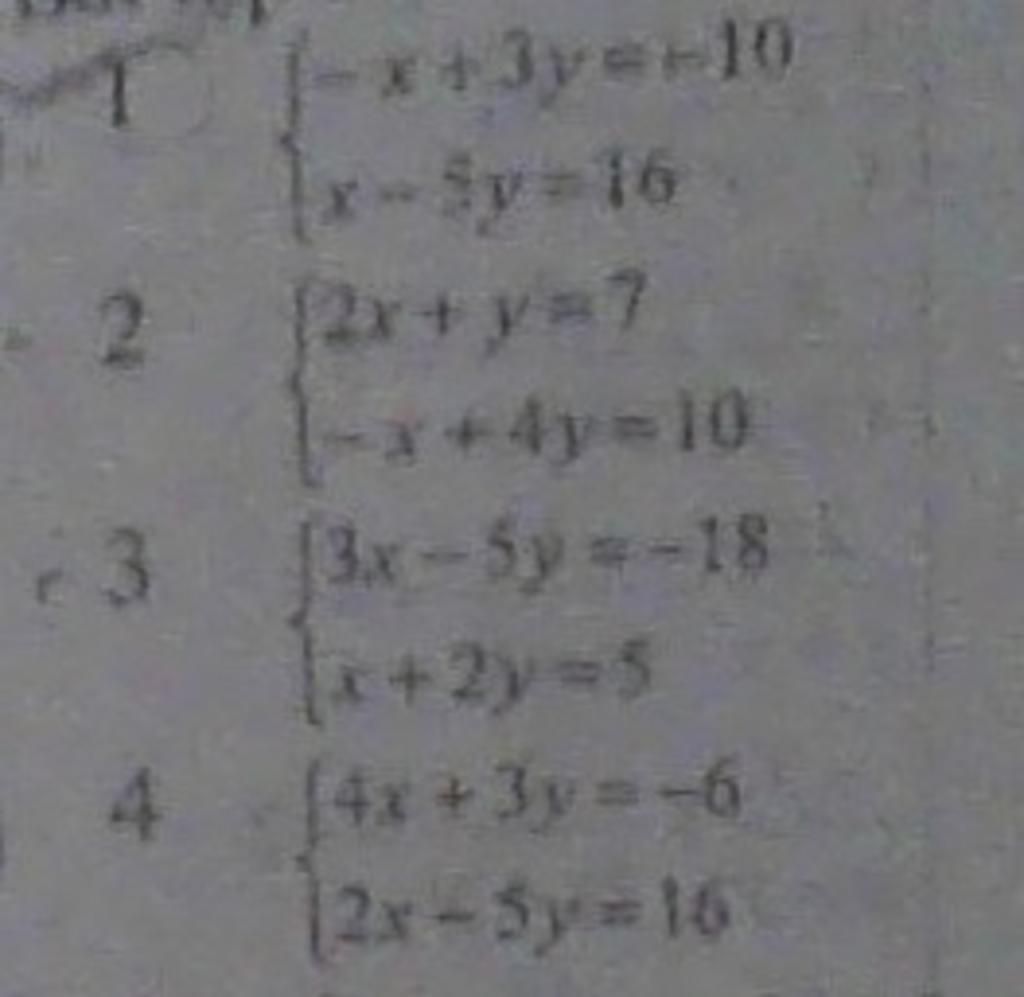 1 -x+3y=-10
x-5y=16
2 2x+y=7
-x+4y=10
3 3x-5y=-18
x+2y=5
4 4x+3y=-6
2x-5y=16